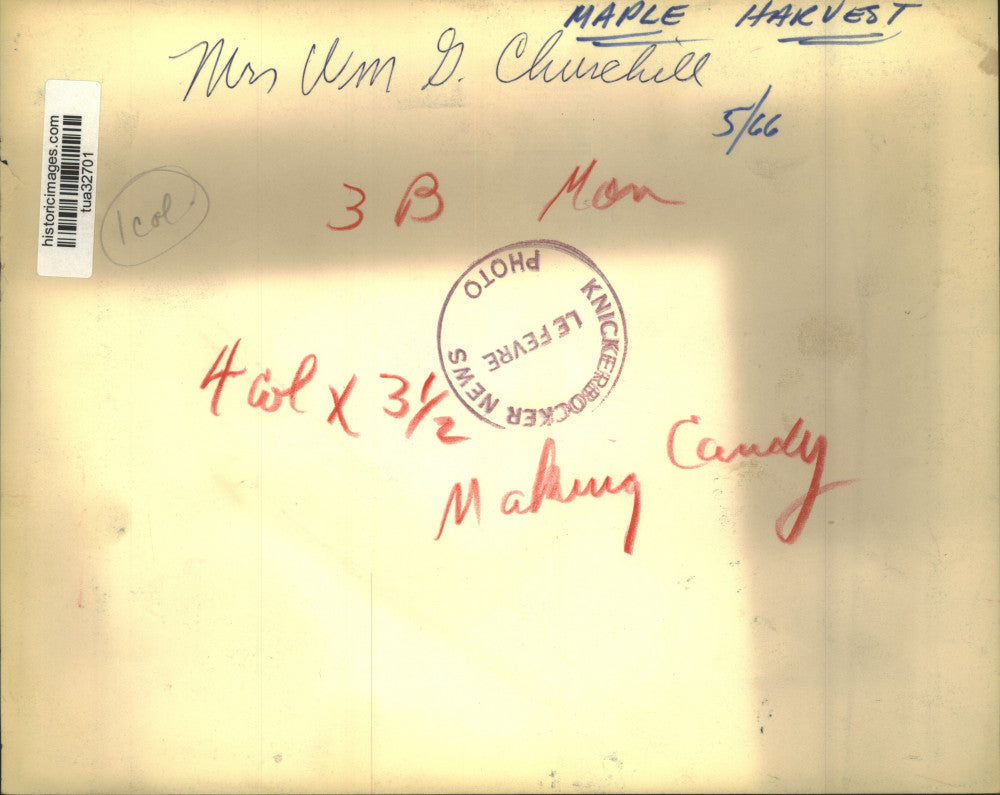 MAPLE HARVEST
Mrs Wm G. Churchill
5/66
historicimages.com
tua32701
1 col.
3 B Mon
KNICKERBOCKER NEWS
LE FEVRE
PHOTO
4 col x 3 1/2
Making Candy